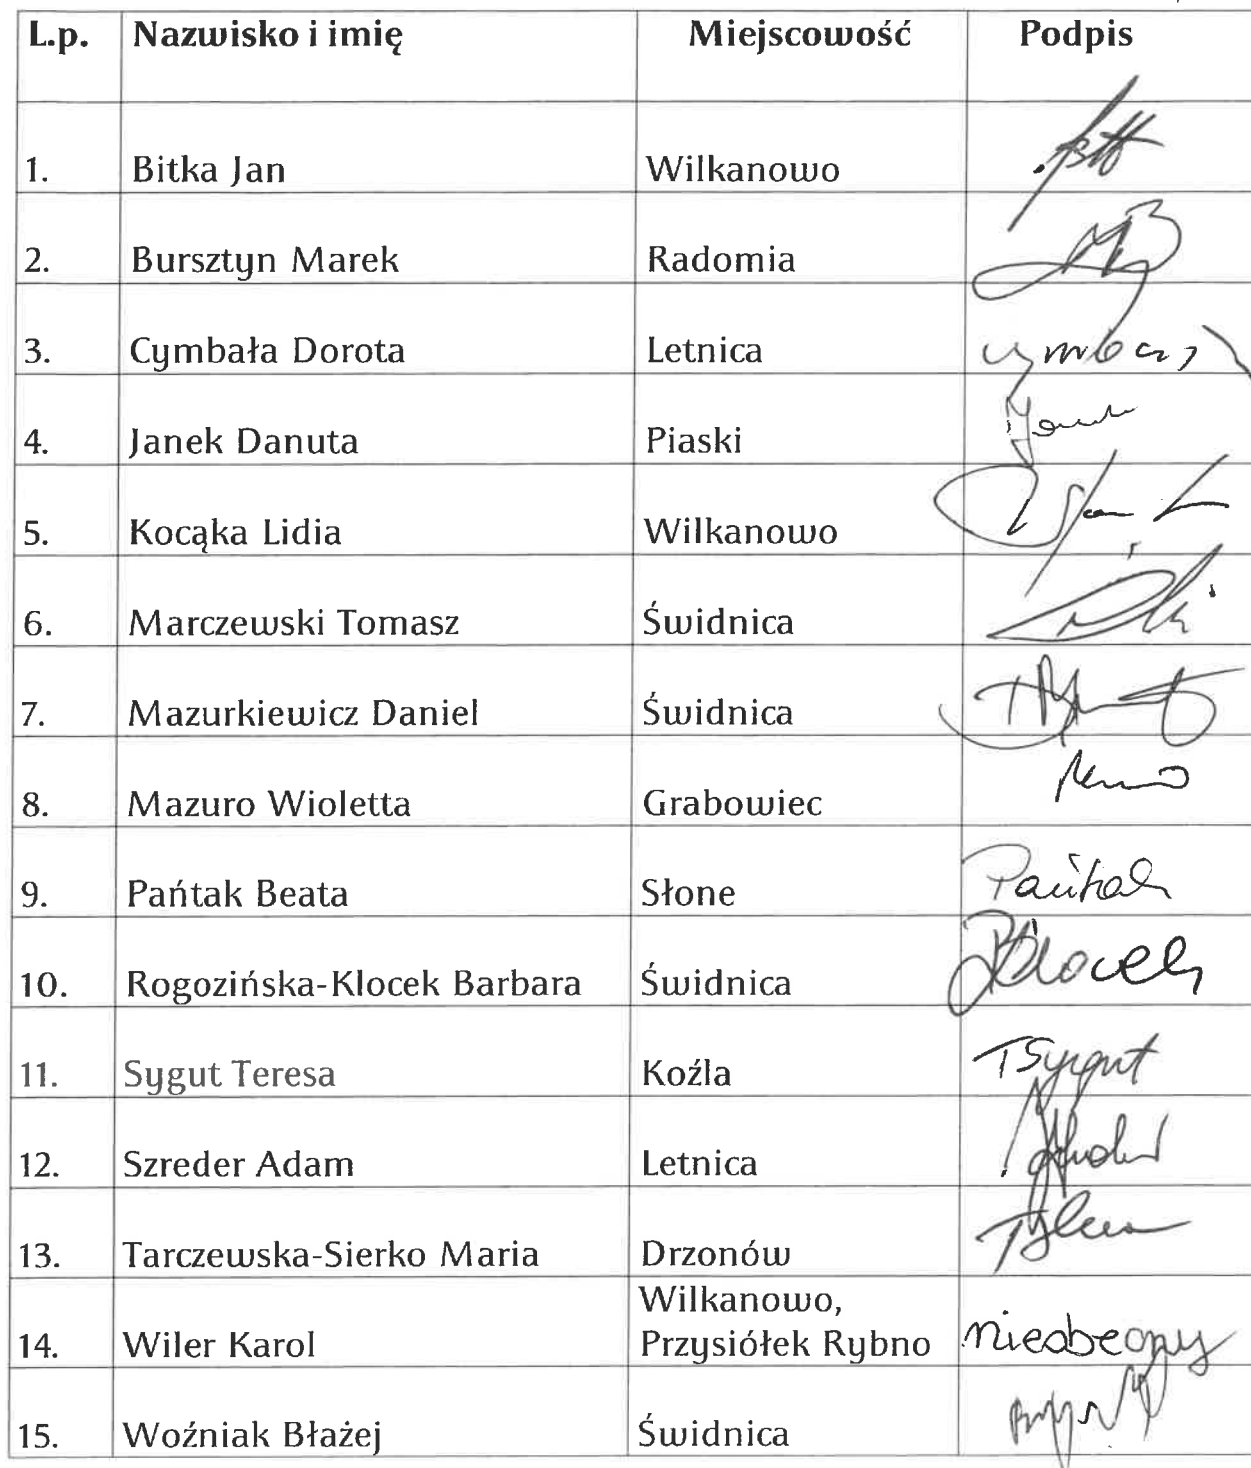 L.p. Nazwisko i imię Miejscowość Podpis
1. Bitka Jan Wilkanowo
2. Bursztyn Marek Radomia
3. Cymbała Dorota Letnica
4. Janek Danuta Piaski
5. Kocąka Lidia Wilkanowo
6. Marczewski Tomasz Świdnica
7. Mazurkiewicz Daniel Świdnica
8. Mazuro Wioletta Grabowiec
9. Pańtak Beata Słone Pańtak
10. Rogozińska-Klocek Barbara Świdnica BKlocek
11. Sygut Teresa Koźla TSygut
12. Szreder Adam Letnica
13. Tarczewska-Sierko Maria Drzonów
Wilkanowo,
14. Wiler Karol Przysiółek Rybno nieobecny
15. Woźniak Błażej Świdnica